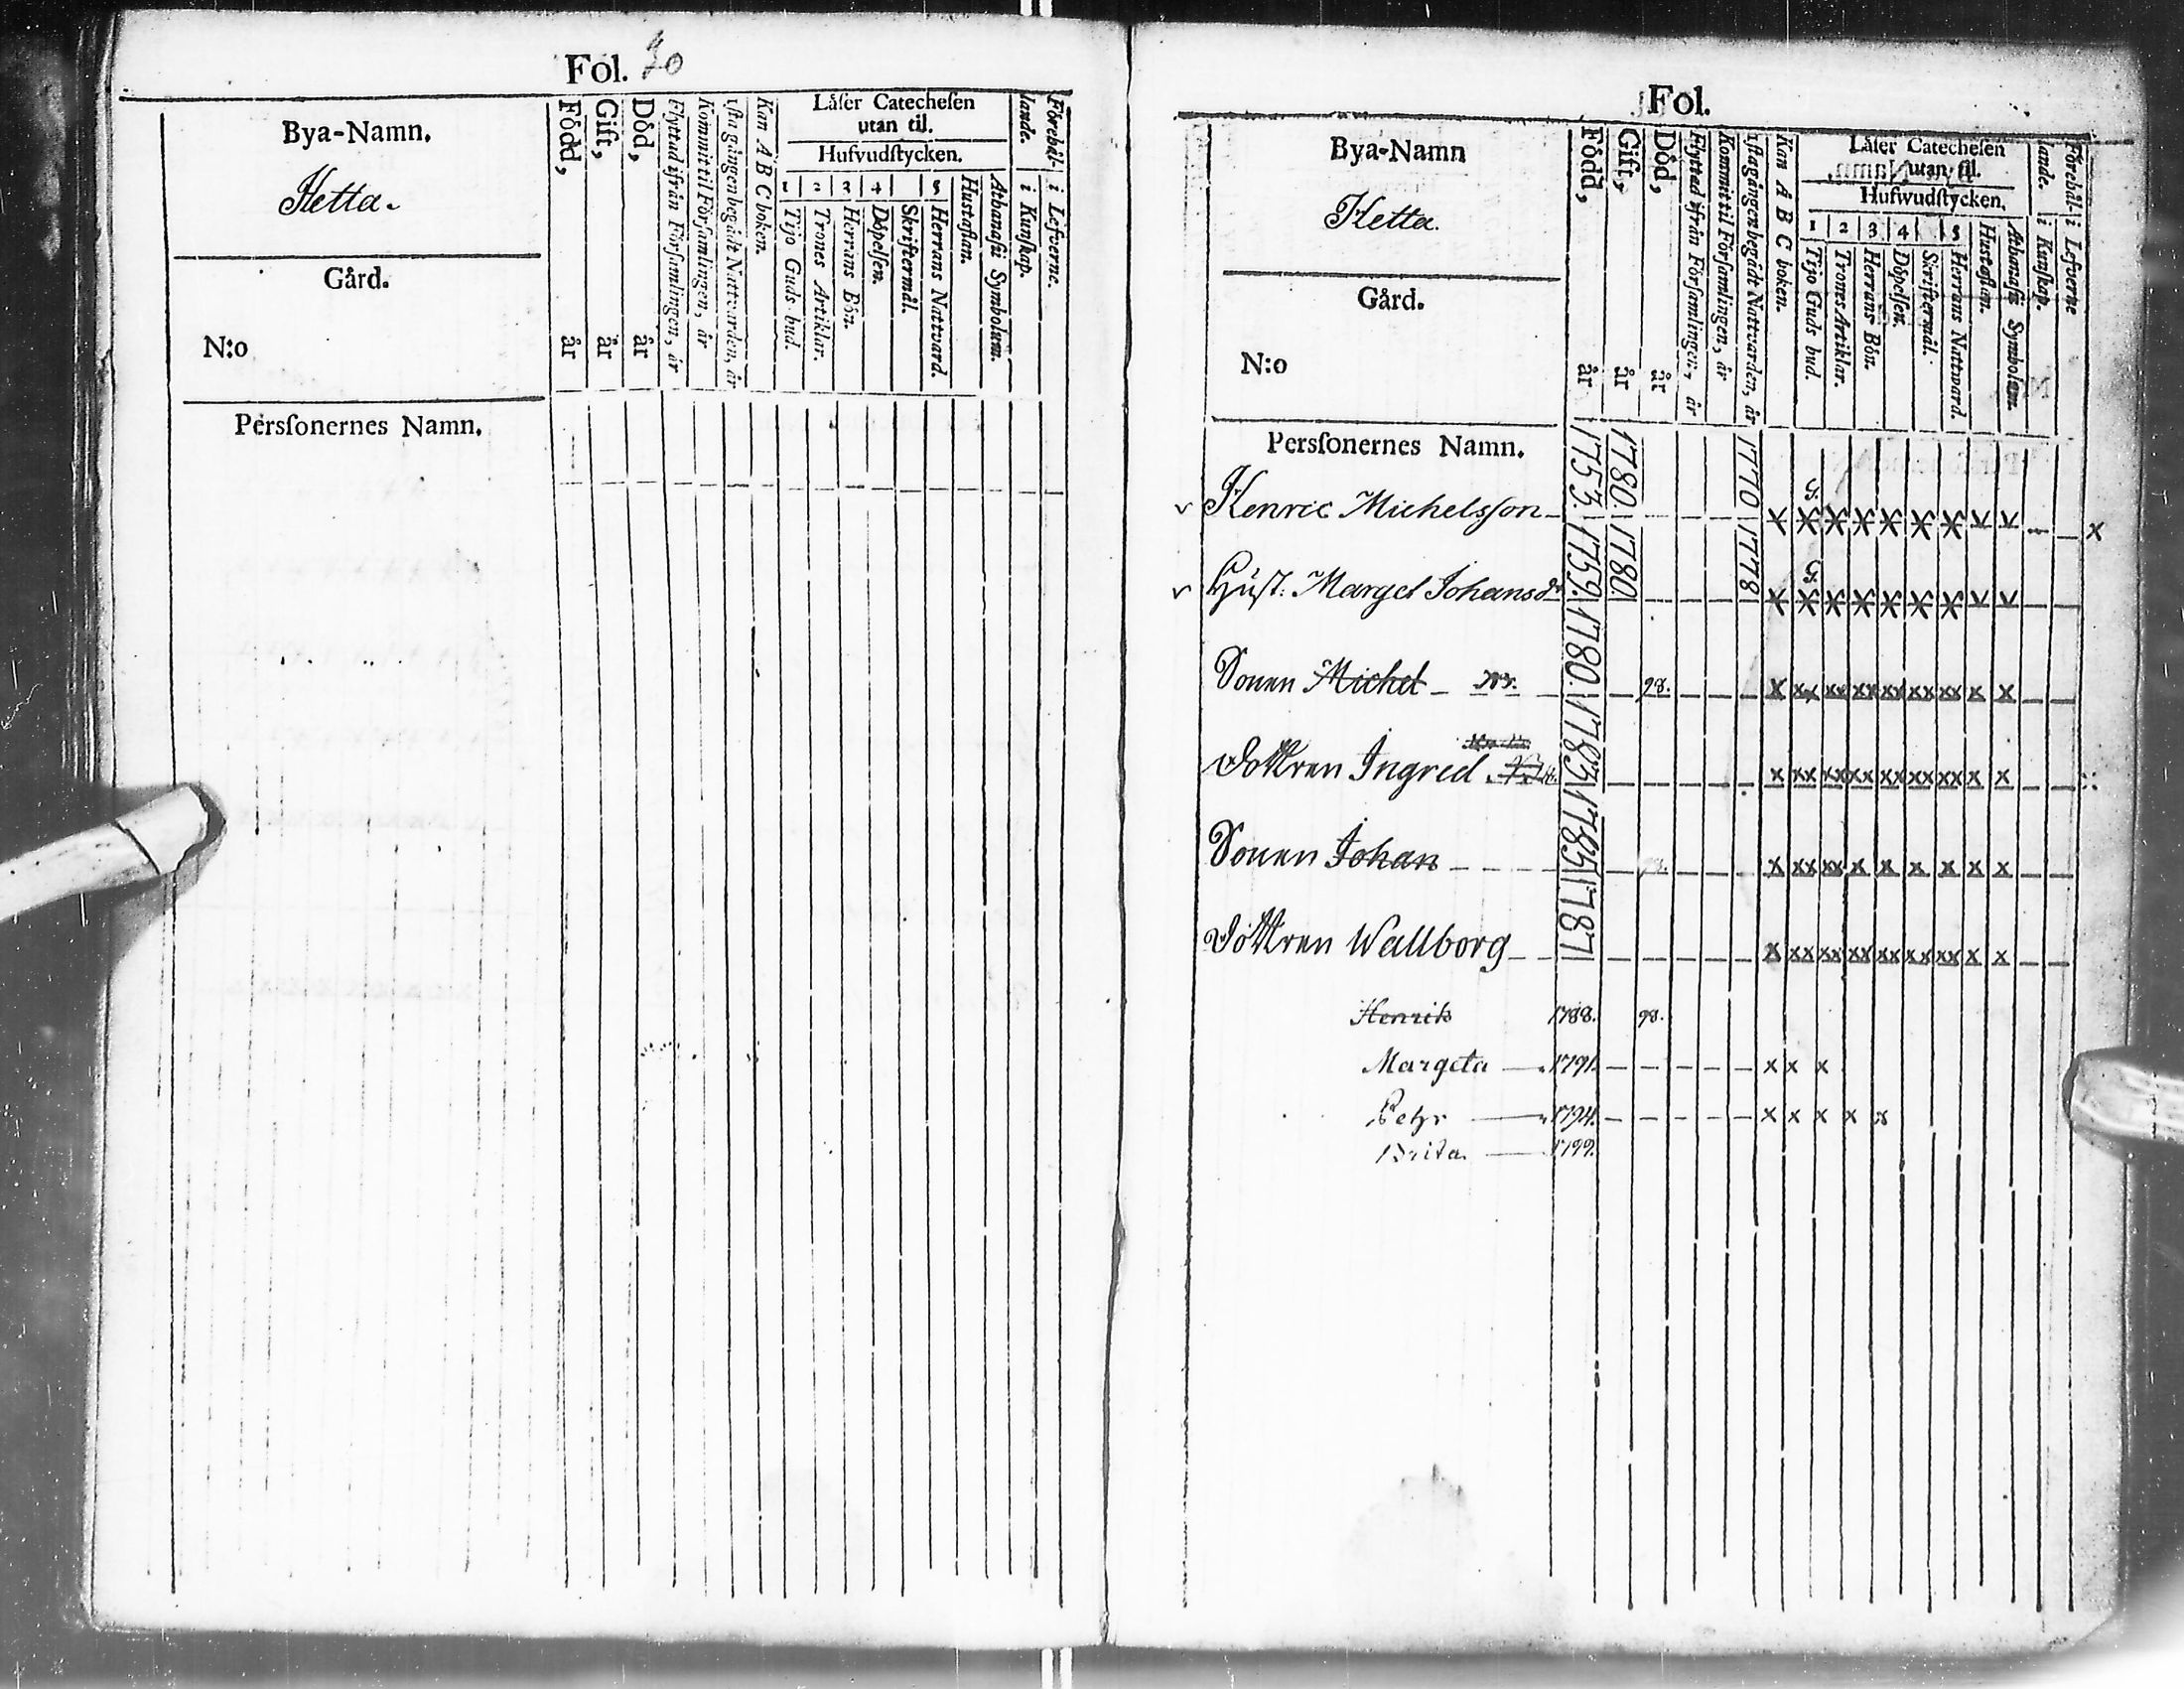 Fol. 30
Bya-Namn.
Hetta.
Gård.
N:o
Persſonernes Namn.
Född, år
Gift, år
Död, år
Flyttad ifrån Församlingen, år
Kommit til Församlingen, år
1sta gången begådt Nattvarden, år
Kan A B C boken.
Låſer Catecheſen
utan til.
Hufvudſtycken.
1 2 3 4 5
Tijo Guds bud.
Trones Artiklar.
Herrans Bön.
Döpelſen.
Skriftermål.
Herrans Nattvard.
Huſtaflan.
Athanaſii Symbolum.
Förebål-
lande.
i Kunſkap.
i Lefverne.
Fol.
Bya-Namn
Hetta.
Gård.
N:o
Persſonernes Namn.
Född, år
Gift, år
Död, år
Flyttad ifrån Församlingen, år
Kommit til Församlingen, år
1sta gången begådt Nattvarden, år
Kan A B C boken.
Låſer Catecheſen
utan til.
Hufwudſtycken.
1 2 3 4 5
Tijo Guds bud.
Trones Artiklar.
Herrans Bön.
Döpelſen.
Skriftermål.
Herrans Nattward.
Huſtaflan.
Athanaſii Symbolum.
Förebål-
lande.
i Kunſkap.
i Lefverne
Henric Michelsſon 1753. 1780. 1770
Huſt. Marget Johansdr 1759. 1780. 1778
Sonen Michel 1780. 98.
Dottren Ingred 1783
Sonen Johan 1785
Dottren Wallborg 1787
Henrik 1788. 98.
Margeta 1791.
Pehr 1794.
Brita 1799.